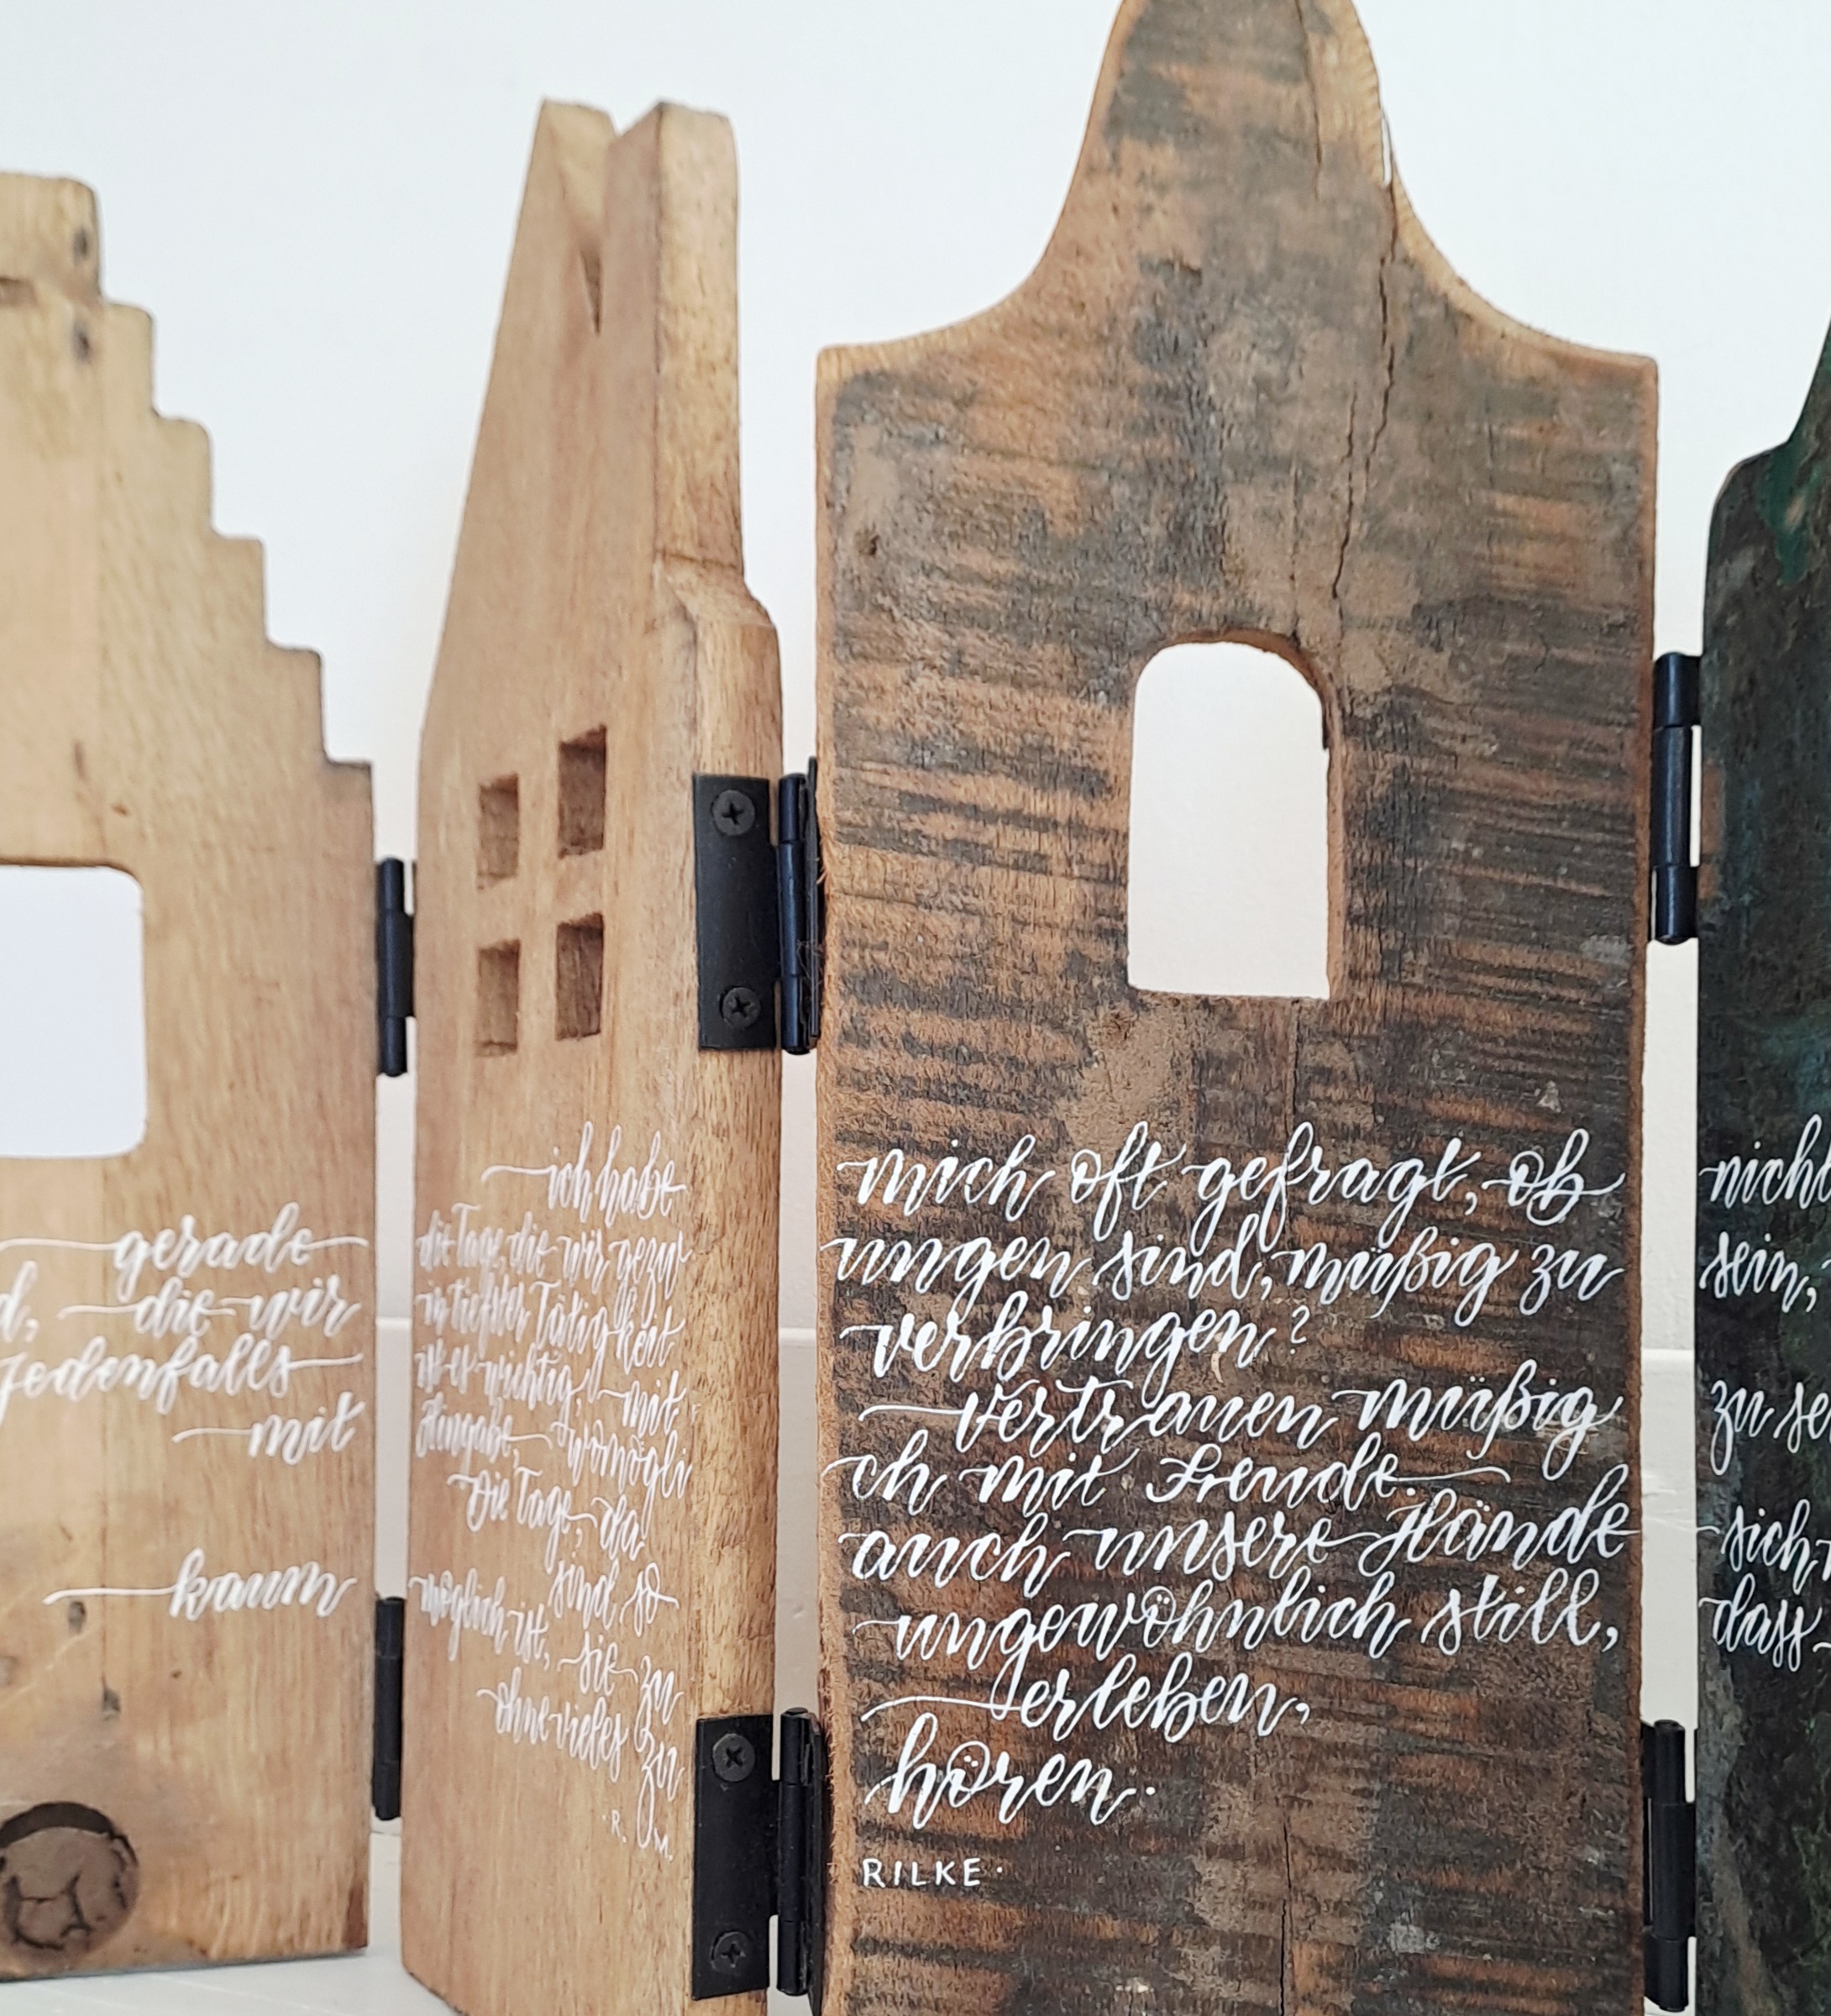 ich habe mich oft gefragt, ob nicht
gerade die Tage, die wir gezwungen sind, müßig zu sein,
die wir in tiefster Tätigkeit verbringen?
Jedenfalls ist es wichtig, mit Vertrauen müßig zu
mit Hingabe, womöglich mit Freude.
Die Tage, da auch unsere Hände sich
sind so ungewöhnlich still, dass
kaum möglich ist, sie zu erleben,
ohne vieles zu hören.
·R. M. RILKE·